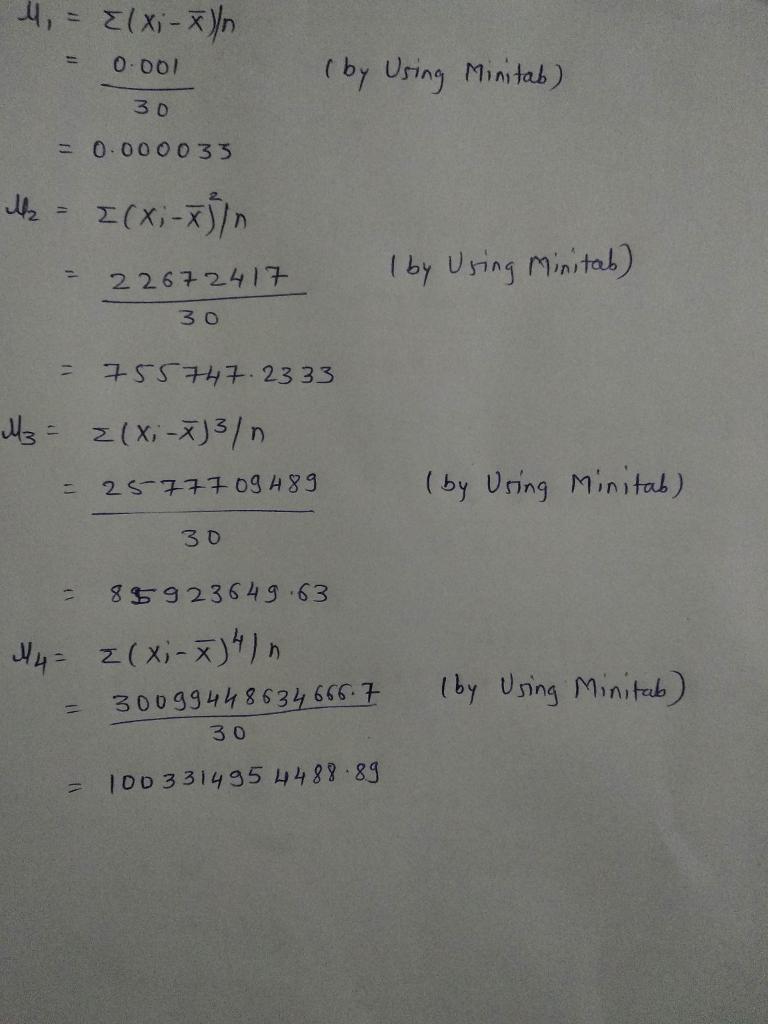 μ₁ = Σ(Xi - x̄)/n
= 0.001 (by Using Minitab)
30
= 0.000033
μ₂ = Σ(Xi - x̄)²/n
= 22672417 (by Using Minitab)
30
= 755747.2333
μ₃ = Σ(Xi - x̄)³/n
= 2577709489 (by Using Minitab)
30
= 85923649.63
μ₄ = Σ(Xi - x̄)⁴/n
= 30099448634666.7 (by Using Minitab)
30
= 1003314954488.89